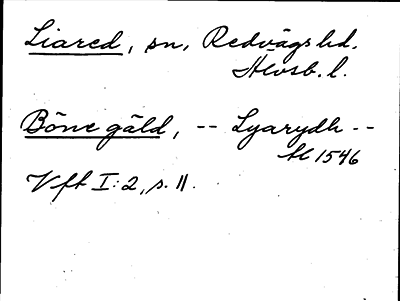 Liared, sn, Redvägs hd.
Älvsb. l.
Böne gäld, -- Lyarydh --
1546
Vft I:2, s. 11.